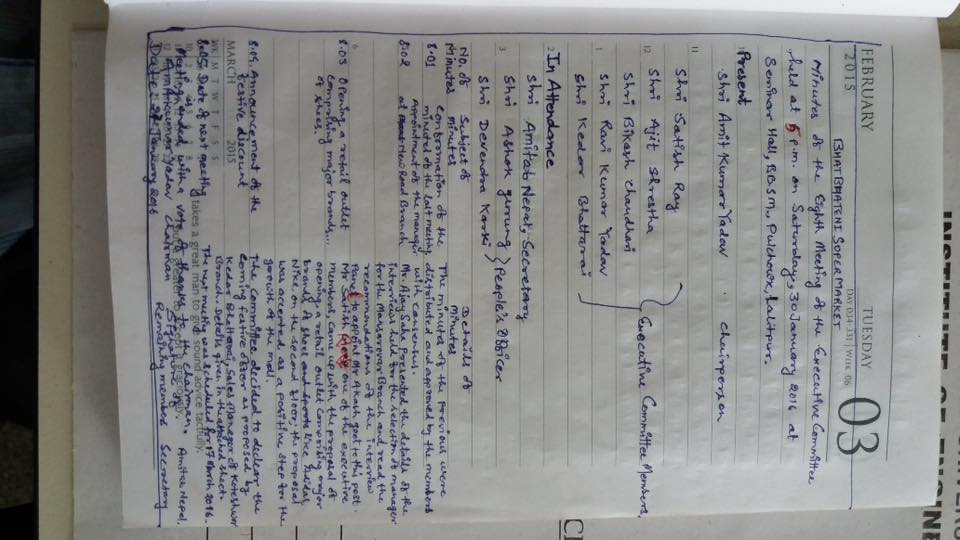 FEBRUARY
2015
TUESDAY
DAY 034-331 | WEEK 06
03
BHATBHATENI SUPER MARKET
Minutes of the Eighth Meeting of the Executive Committee
held at 5 p.m. on Saturday, 30 January 2016 at
Seminar Hall, BBSM, Pulchowk, Lalitpur.
Present
Shri Amit Kumar Yadav - Chairperson
11
Shri Satish Ray
12
Shri Ajit Shrestha
Executive Committee Members,
Shri Bikash Chaudhari
1
Shri Ravi Kumar Yadav
Shri Kedar Bhattarai
2
In Attendance
Shri Amitab Nepal, Secretary
3
Shri Ashok Gurung
People's Officer
Shri Devendra Karki
No. of Minutes
Subject of Minutes
Details of Minutes
8.01
Confirmation of the minutes of the last meeting
The minutes of the previous were distributed and approved by the members with consensus.
8.02
Appointment of the manager at New Road Branch
Mr. Ajay Sake Presented the details of the interviews held for the selection of manager for the Mansarovar Branch and read the recommendations of the interview Panel to appoint Mr. Akash goel to this post.
6
8.03
Opening a retail outlet comprising major brands of shoes.
Mr. Satish one of the executive members, came up with the proposal of opening a retail outlet comprising major brands of shoes and sports like Adidas, Nike on the second floor, the proposal was accepted as a positive step for the growth of the mall.
8.04
Announcement of the festive discount
The Committee decided to declare the coming festive offer as proposed by Kedar Bhattarai, Sales Manager of Koteshwor Branch. Details given in the attached sheet.
MARCH 2015
WK M T W T F S S
8.05
Date of next meeting
The next meeting was scheduled for 17 March 2016.
takes a great man to give sound advice tactfully
Meeting ended with a vote of thanks to the chairman.
Amit Kumar Yadav Chairman
Amitab Nepal, Secretary
Date - 30 January 2016
INSTITUTE OF ENGINE